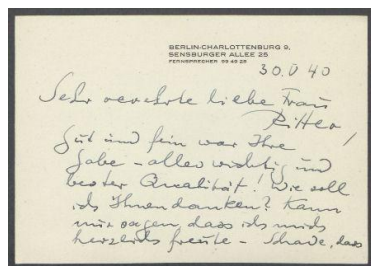 BERLIN-CHARLOTTENBURG 9,
SENSBURGER ALLEE 25
FERNSPRECHER 99 40 25
30. V 40
Sehr verehrte liebe Frau
Ritter!
Gut und fein war Ihre
Gabe - alles wichtig und
bester Qualität! Wie soll
ich Ihnen danken? Kann
nur sagen dass ich mich
herzlich freute - Schade, dass